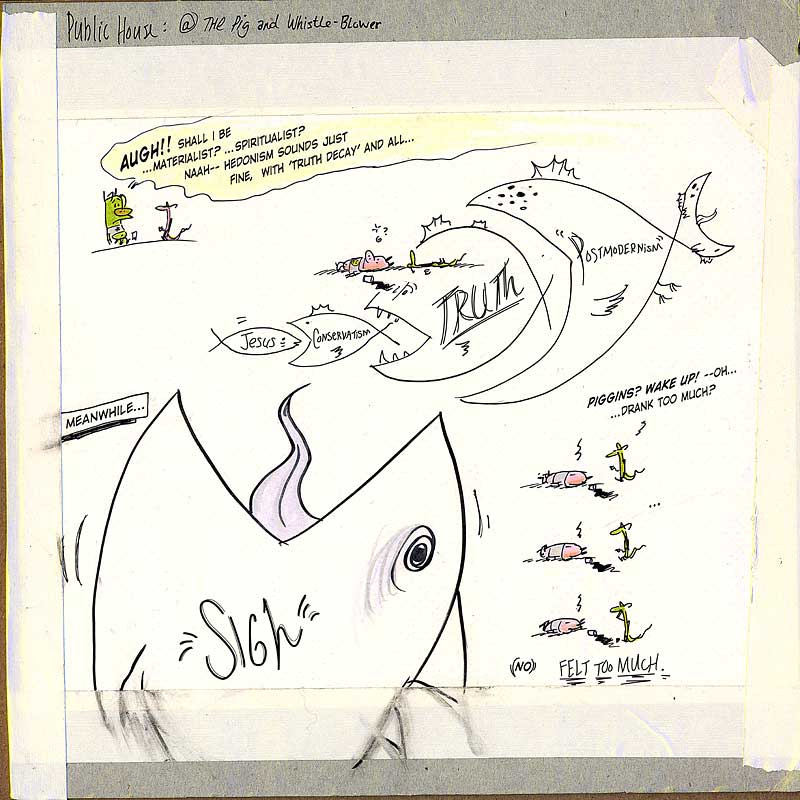 Public House: @ THE Pig and Whistle-Blower
AUGH!! SHALL I BE
...MATERIALIST? ...SPIRITUALIST?
NAAH-- HEDONISM SOUNDS JUST
FINE, WITH 'TRUTH DECAY' AND ALL...
"POSTMODERNISM"
TRUTH
Jesus
CONSERVATISM
MEANWHILE...
PIGGINS? WAKE UP! --OH...
...DRANK TOO MUCH?
...
SIGH
(NO) FELT TOO MUCH.